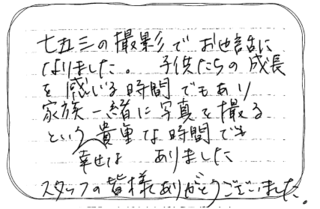 七五三の撮影でお世話に
なりました。子供たちの成長
を感じる時間でもあり
家族一緒に写真を撮る
という貴重な時間でも
幸せは ありました
スタッフの皆様ありがとうございました。